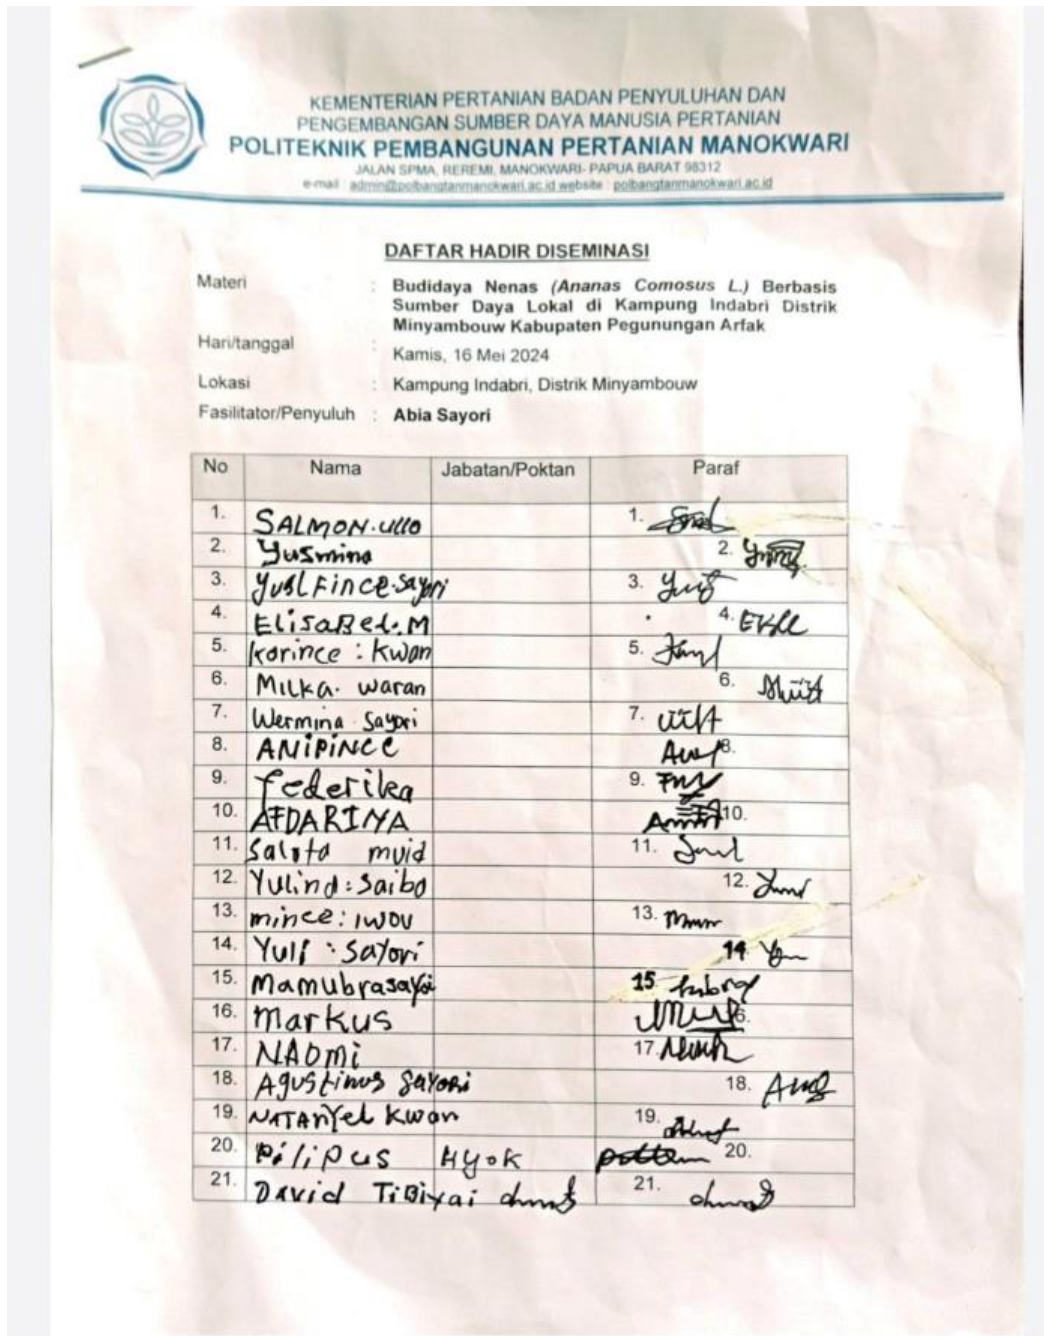 KEMENTERIAN PERTANIAN BADAN PENYULUHAN DAN
PENGEMBANGAN SUMBER DAYA MANUSIA PERTANIAN
POLITEKNIK PEMBANGUNAN PERTANIAN MANOKWARI
JALAN SPMA, REREMI, MANOKWARI- PAPUA BARAT 98312
e-mail : admin@polbangtanmanokwari.ac.id website : polbangtanmanokwari.ac.id
DAFTAR HADIR DISEMINASI
Materi : Budidaya Nenas (Ananas Comosus L.) Berbasis
Sumber Daya Lokal di Kampung Indabri Distrik
Minyambouw Kabupaten Pegunungan Arfak
Hari/tanggal : Kamis, 16 Mei 2024
Lokasi : Kampung Indabri, Distrik Minyambouw
Fasilitator/Penyuluh : Abia Sayori
No Nama Jabatan/Poktan Paraf
1. SALMON. ullo 1.
2. Yusmina 2.
3. YuslFince.sayori 3.
4. ElisaBet.M 4.
5. korince : kwan 5.
6. MILKa. waran 6.
7. Wermina Sayori 7.
8. ANiPiNCE 8.
9. federika 9.
10. AFDARINA 10.
11. Salota muid 11.
12. Yulind : Saibo 12.
13. mince : iwou 13.
14. Yuli : Sayori 14
15. Mamubrasayori 15
16. Markus 16.
17. NAOmi 17.
18. Agustinus Sayori 18.
19. NATANYel Kwan 19.
20. Pilipus Hyok 20.
21. David TiBiyai 21.